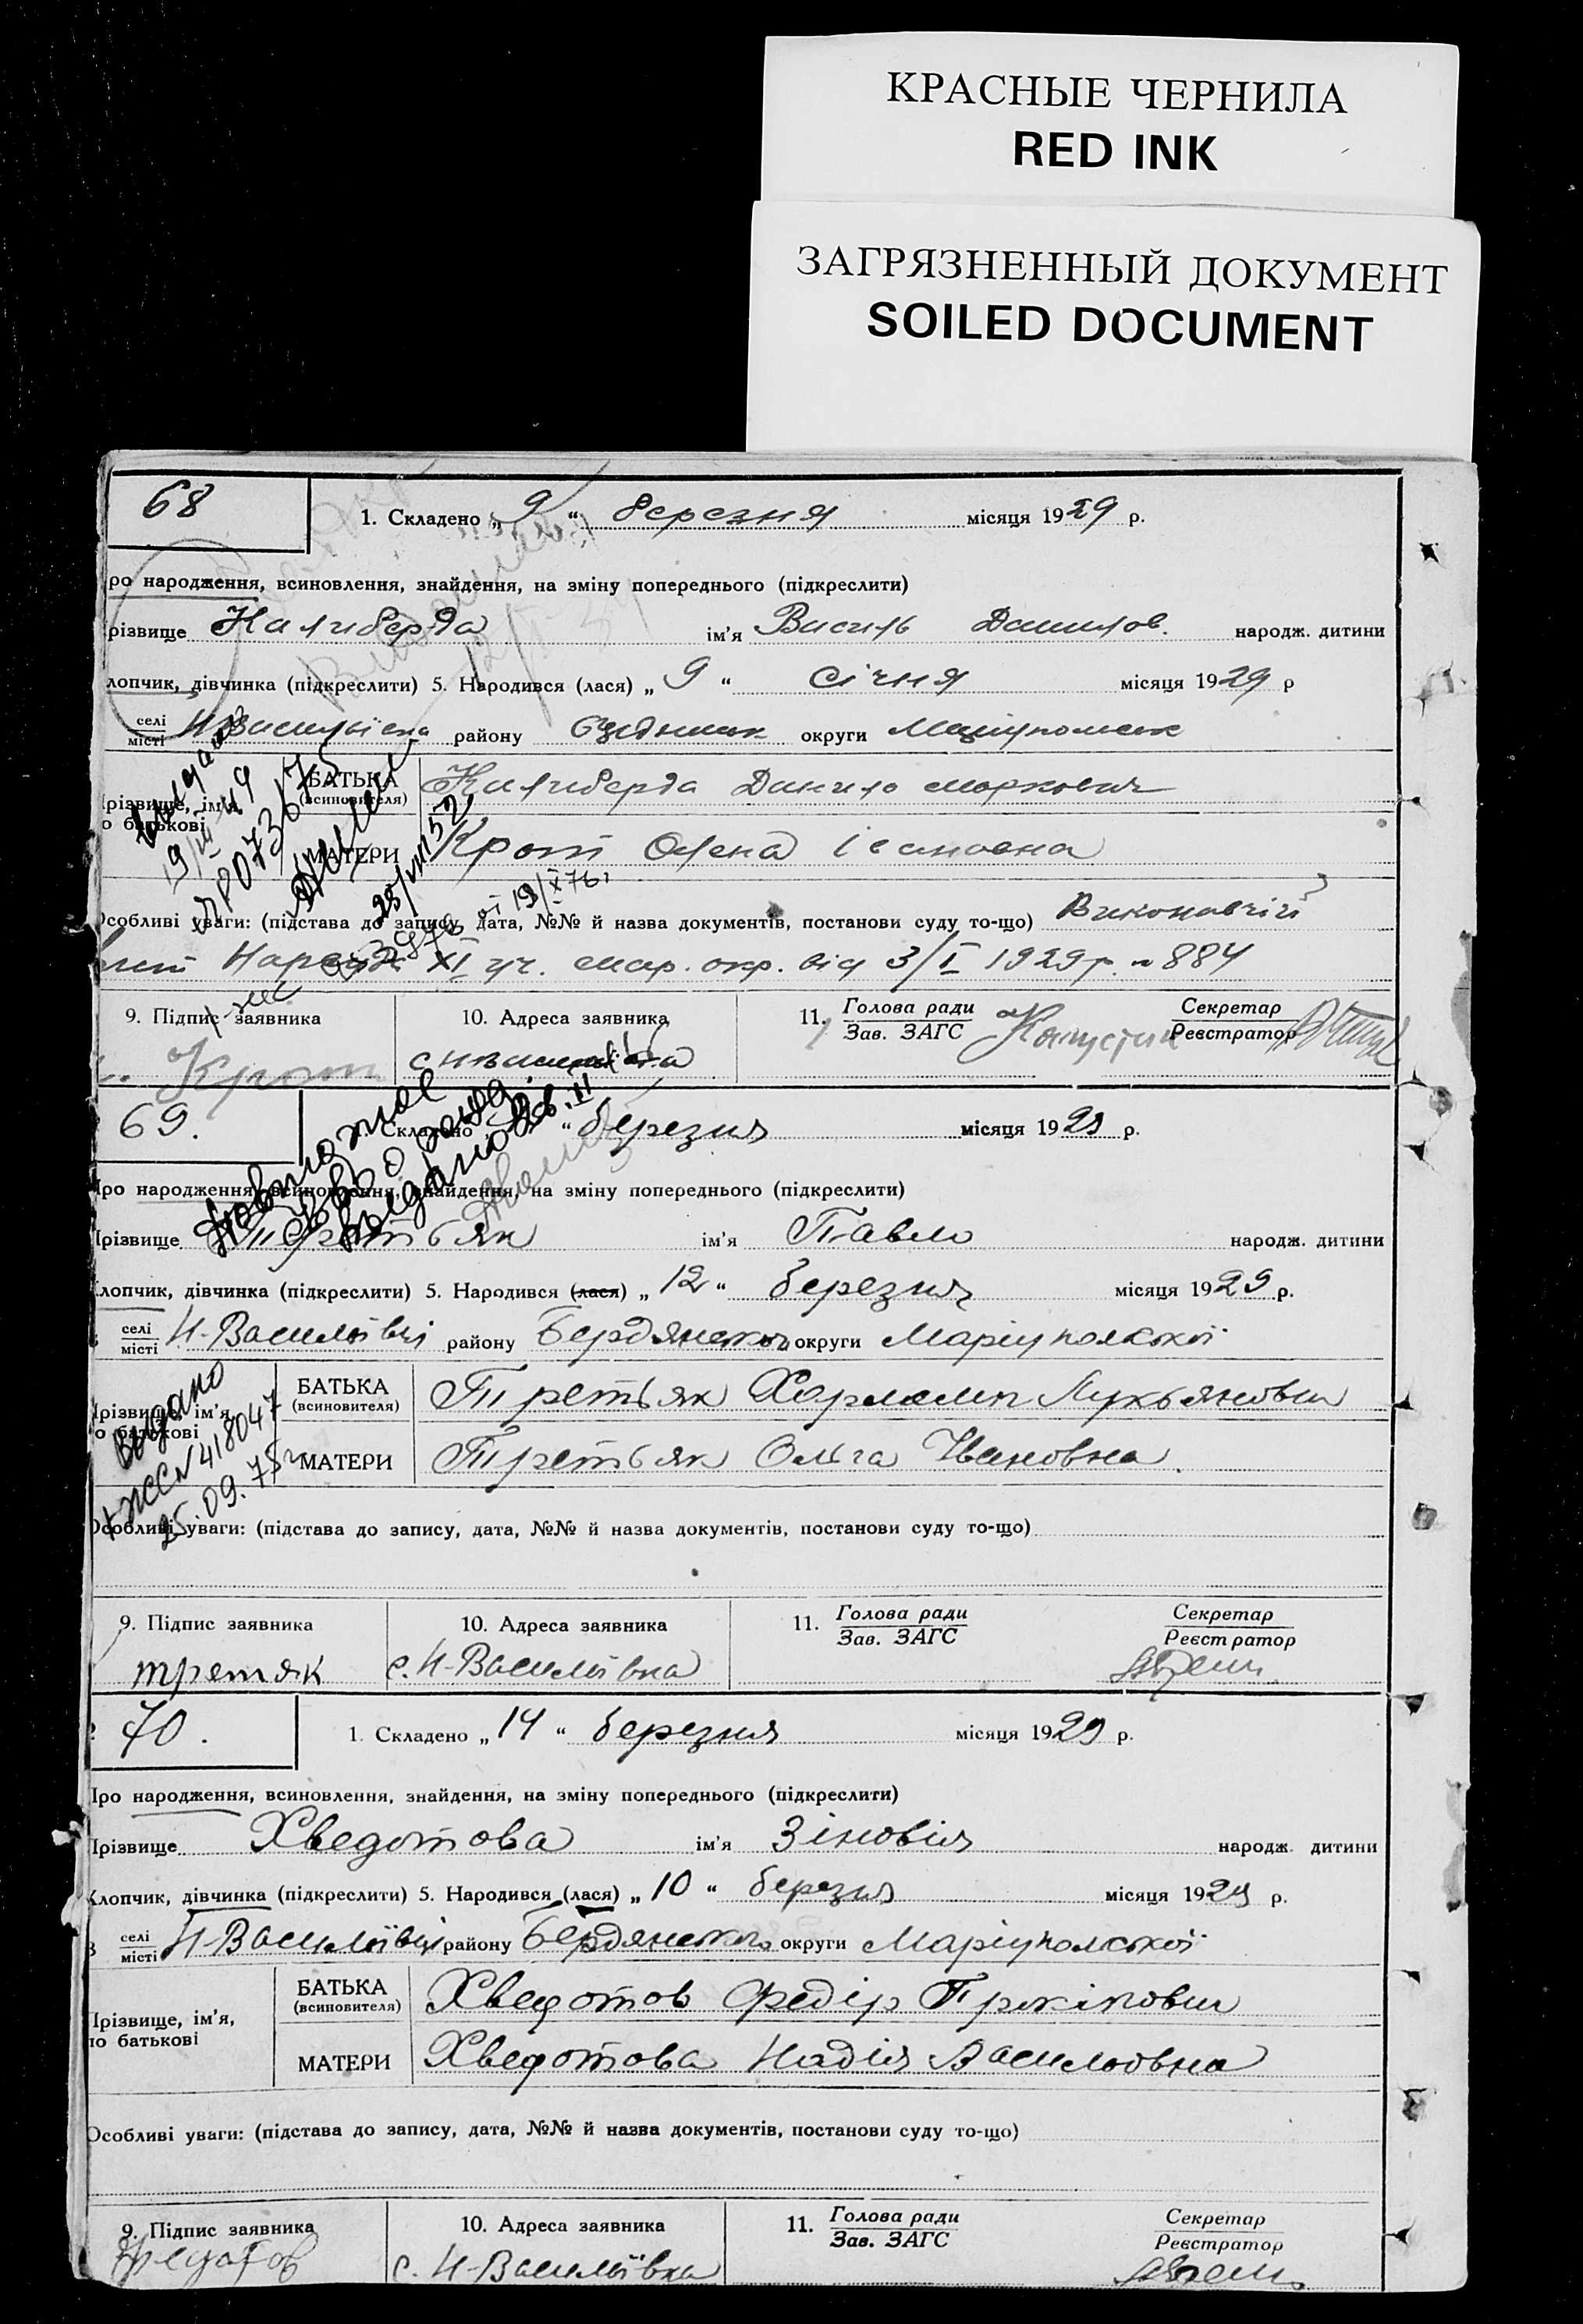 КРАСНЫЕ ЧЕРНИЛА
RED INK
ЗАГРЯЗНЕННЫЙ ДОКУМЕНТ
SOILED DOCUMENT
68
1. Складено „ 9 “ березня місяця 1929 р.
ро народження, всиновлення, знайдення, на зміну попереднього (підкреслити)
різвище Калиберда ім'я Василь Данилов. народж. дитини
лопчик, дівчинка (підкреслити) 5. Народився (лася) „ 9 “ січня місяця 1929 р
селі
місті Н Василівка району округи Маріупольськ
різвище, ім'я,
о батькові
БАТЬКА
(всиновителя) Калиберда Данило Маркович
МАТЕРИ Крот Олена Івановна
19/ІІІ 49
25/VIII 52
от 19/X 76г
Особливі уваги: (підстава до запису, дата, №№ й назва документів, постанови суду то-що) Виконавчій
лист Нарсуда XI уч. мар. окр. від 3/І 1929 р. № 884
9. Підпис заявника
10. Адреса заявника
11. Голова ради
Зав. ЗАГС
Секретар
Реєстратор
Крот
69.
Складено “ березня місяця 1929 р.
Повторное
выдано
Про народження, всиновлення, знайдення, на зміну попереднього (підкреслити)
Прізвище Третьяк ім'я Павло народж. дитини
Клопчик, дівчинка (підкреслити) 5. Народився (лася) „ 12 “ березня місяця 1929 р.
селі
місті Н-Василівці району Бердянського округи Маріупольської
Прізвище, ім'я,
о батькові
БАТЬКА
(всиновителя) Третьяк Харламп Лукьянович
МАТЕРИ Третьяк Ольга Івановна
Выдано
№ 418047
25.09.75г
Особливі уваги: (підстава до запису, дата, №№ й назва документів, постанови суду то-що)
9. Підпис заявника
10. Адреса заявника
11. Голова ради
Зав. ЗАГС
Секретар
Реєстратор
третяк
с. Н-Василівка
70.
1. Складено „ 14 “ березня місяця 1929 р.
Про народження, всиновлення, знайдення, на зміну попереднього (підкреслити)
Прізвище Хведотова ім'я Зіновія народж. дитини
Хлопчик, дівчинка (підкреслити) 5. Народився (лася) „ 10 “ березня місяця 1929 р.
в селі
місті Н-Василівці району Бердянського округи Маріупольської
Прізвище, ім'я,
по батькові
БАТЬКА
(всиновителя) Хведотов Федір
МАТЕРИ Хведотова Надія Васильовна
Особливі уваги: (підстава до запису, дата, №№ й назва документів, постанови суду то-що)
9. Підпис заявника
10. Адреса заявника
11. Голова ради
Зав. ЗАГС
Секретар
Реєстратор
с. Н-Василівка